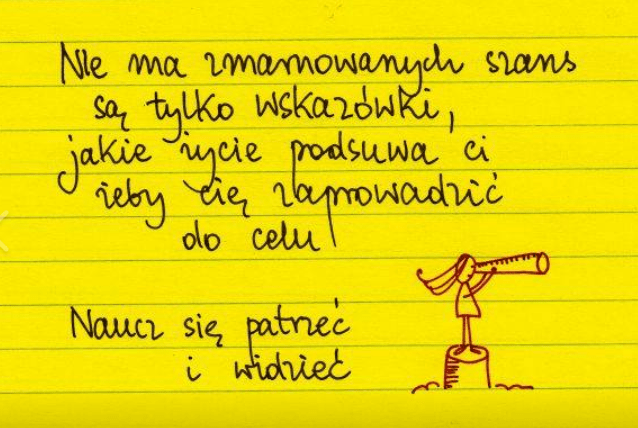 Nie ma zmarnowanych szans
są tylko wskazówki,
jakie życie podsuwa ci
żeby cię zaprowadzić
do celu
Naucz się patrzeć
i widzieć